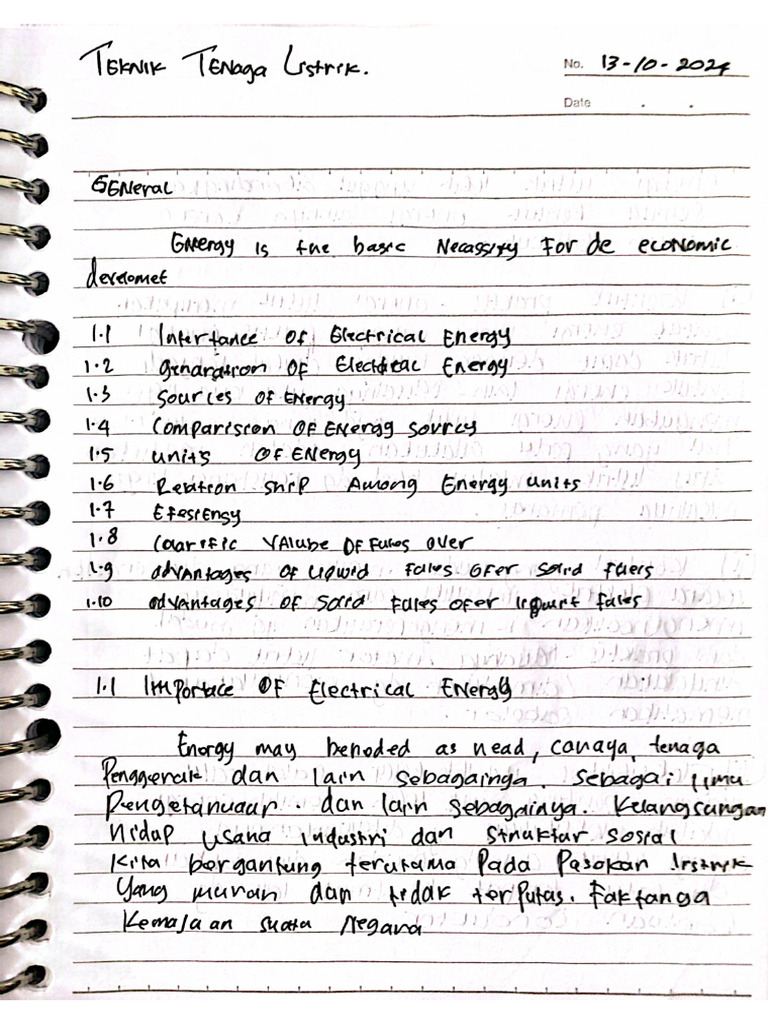 TEKNIK TENAGA Listrik.
No. 13-10-2024
Date . .
GENeral
ENergy is the basic Necassity For de economic
develomet
1.1 Intertance OF Electrical Energy
1.2 Genaration OF Electrical Energy
1.3 Sources OF ENergy
1.4 Comparision OF ENergg sourcy
1.5 units OF ENergy
1.6 Relation ship Among Energy units
1.7 Efesiensy
1.8 Calarific VAlube OF Fules Over
1.9 advantages OF liqwid Fules OFer solid Fuers
1.10 advantages OF Solid Fules OFer liqwirt Fules
1.1 Importace OF Electrical ENergy
Energy may benoded as nead, cahaya, tenaga
Penggerak dan lain sebagainga sebagai ilmu
Pengetahuaar. dan lain sebagainya. Kelangsungan
hidap usaha industri dan struktar sosial
Kita bergantung terutama Pada Pasokan listrik
Yang murah dan tidak terputas. Faktanga
Kemajaan suata Negara